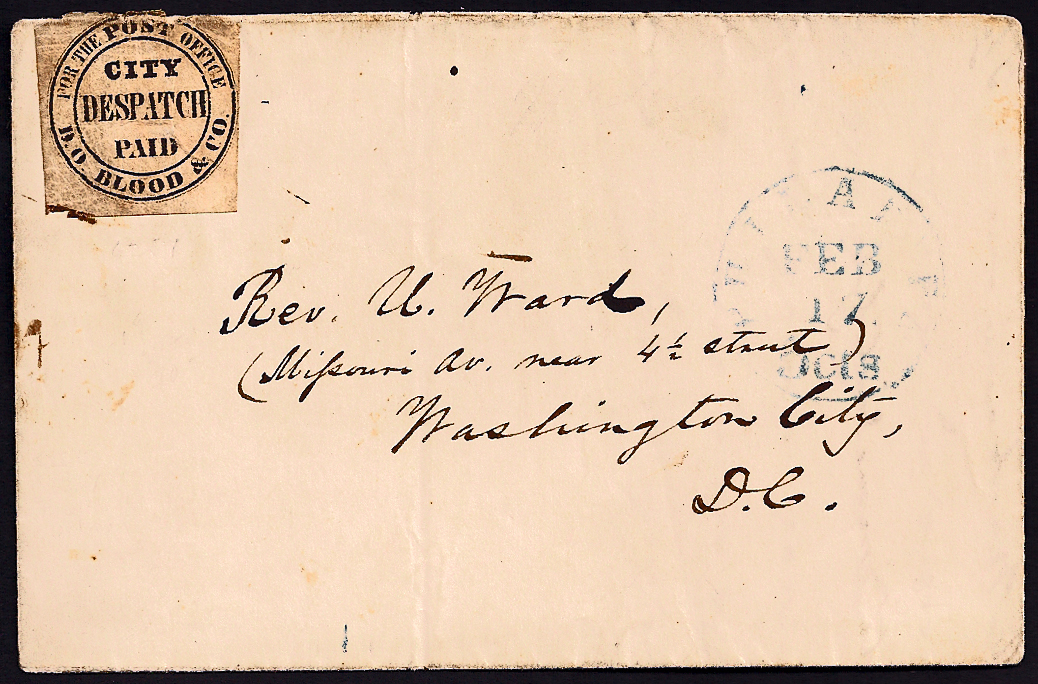 FOR THE POST OFFICE
CITY
DESPATCH
PAID
D.O. BLOOD & CO.
FEB
17
5cts
Rev. U. Ward,
(Missouri Av. near 4½ street)
Washington City,
D.C.